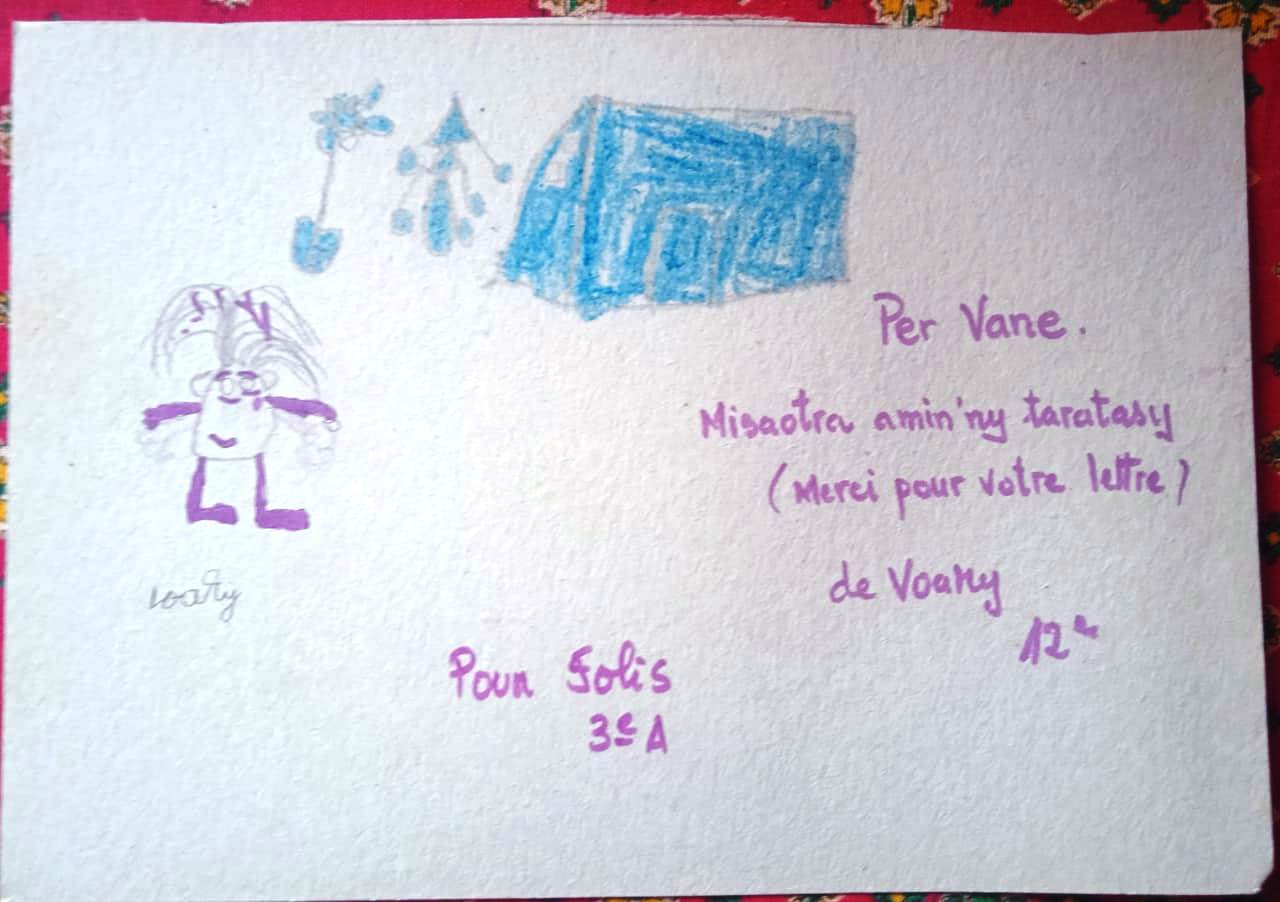 Per Vane.
Misaotra amin'ny taratasy
(Merci pour votre lettre)
de Voary
12e
voary
Pour Folis
3e A